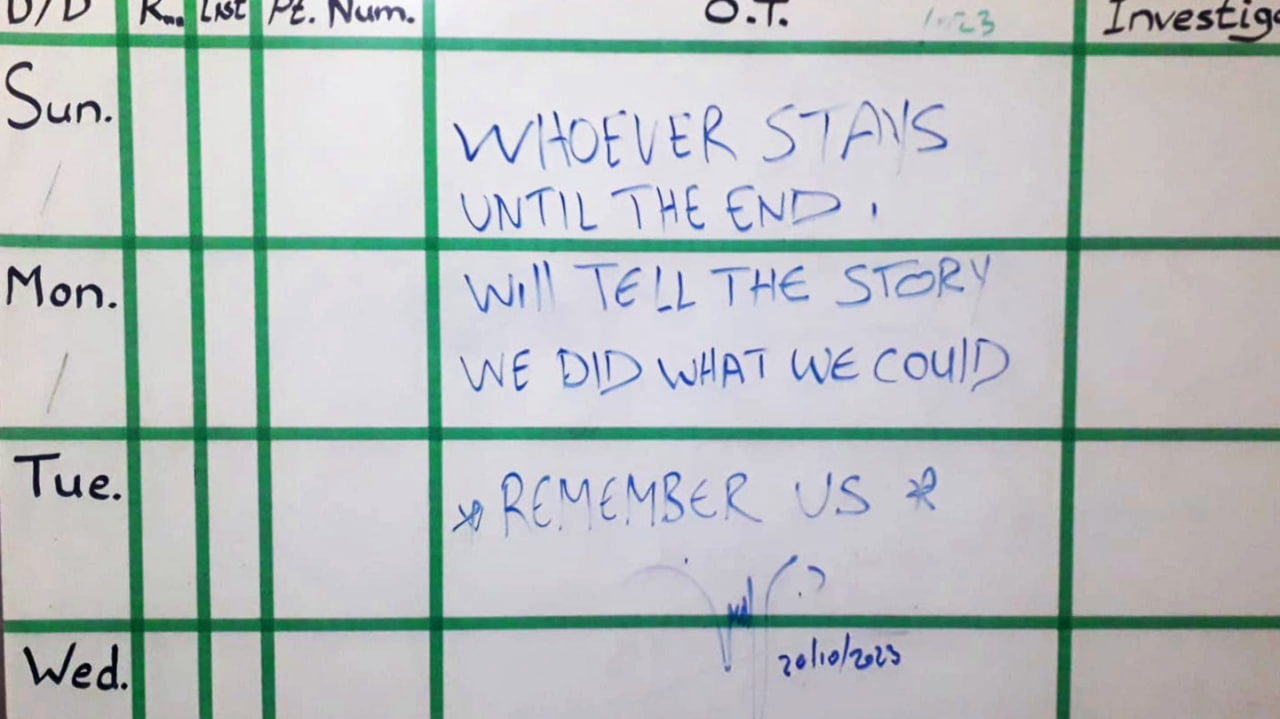 D/D R... List Pt. Num. O.T. Investig
Sun.
WHOEVER STAYS
UNTIL THE END.
Mon.
Will TELL THE STORY
WE DID WHAT WE COUlD
Tue.
* REMEMBER US *
Wed.
20/10/2023